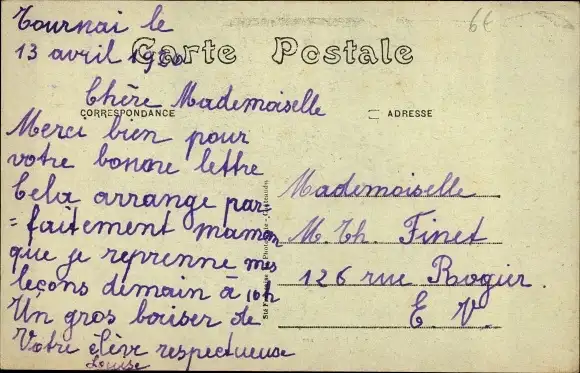 6€
Tournai le
13 avril 1920
Carte Postale
Chère Mademoiselle
CORRESPONDANCE
ADRESSE
Merci bien pour
votre bonne lettre
Cela arrange par
=faitement maman
que je reprenne mes
leçons demain à 10h
Un gros baiser de
Votre élève respectueuse
Louise
Mademoiselle
M. Th. Finet
126 rue Rogier.
E. V.